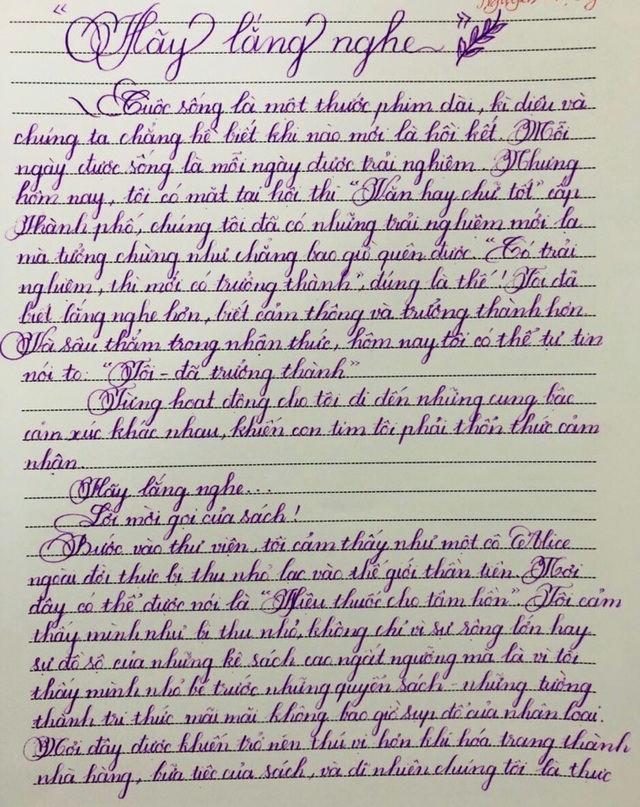 “Hãy lắng nghe”
Cuộc sống là một thước phim dài, kì diệu và
chúng ta chẳng hề biết khi nào mới là hồi kết. Mỗi
ngày được sống là mỗi ngày được trải nghiệm. Nhưng
hôm nay, tôi có mặt tại hội thi “Văn hay chữ tốt” cấp
Thành phố, chúng tôi đã có những trải nghiệm mới lạ
mà tưởng chừng như chẳng bao giờ quên được. “Có trải
nghiệm, thì mới có trưởng thành”, đúng là thế! Tôi đã
biết lắng nghe hơn, biết cảm thông và trưởng thành hơn.
Và sâu thẳm trong nhận thức, hôm nay tôi có thể tự tin
nói to: “Tôi - đã trưởng thành”
Từng hoạt động cho tôi đi đến những cung bậc
cảm xúc khác nhau, khiến con tim tôi phải thổn thức cảm
nhận.
Hãy lắng nghe...
Lời mời gọi của sách!
Bước vào thư viện, tôi cảm thấy như một cô Alice
ngoài đời thực bị thu nhỏ lạc vào thế giới thần tiên. Nơi
đây có thể được nói là “Hiệu thuốc cho tâm hồn”. Tôi cảm
thấy mình như bị thu nhỏ, không chỉ vì sự rộng lớn hay
sự đồ sộ của những kệ sách cao ngất ngưởng mà là vì tôi
thấy mình nhỏ bé trước những quyển sách - những tường
thành tri thức mãi mãi không bao giờ sụp đổ của nhân loại.
Nơi đây được khiến trở nên thú vị hơn khi hóa trang thành
nhà hàng, bữa tiệc của sách, và dĩ nhiên chúng tôi là thực